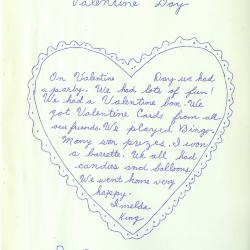 Valentine Day
On Valentine Day we had
a party. We had lots of fun!
We had a Valentine box. We
got Valentine Cards from all
our friends. We played Bingo.
Many won prizes. I won
a barrette. We all had
candies and balloons.
We went home very
happy.
Imelda
King